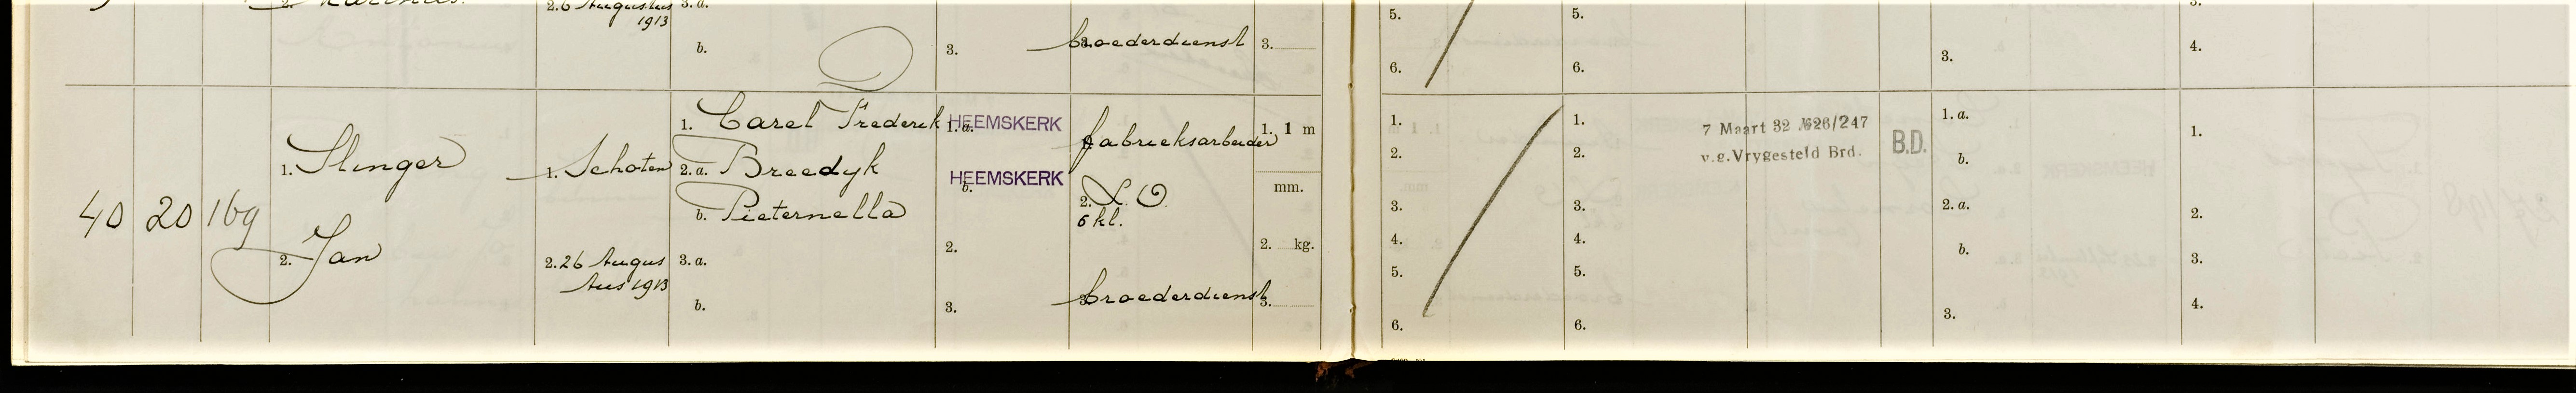 2. 2.6 Augustus 3. a. 5. 5. 3.
1913
b. 3. 3. broederdienst 3. 6. 6. 3. 4.
40 20 169
1. Slinger
2. Jan
1. Schoten
2. 26 Augus
tus 1913
1. Carel Frederik
2. a. Breedyk
b. Pieternella
3. a.
b.
1. a. HEEMSKERK
b. HEEMSKERK
2.
3.
1. fabrieksarbeider
2. L. O.
6 kl.
3. broederdienst
1. 1 m
mm.
2. kg.
3.
1.
2.
3.
4.
5.
6.
1.
2.
3.
4.
5.
6.
7 Maart 32 №26/247
v.g. Vrygesteld Brd.
B.D.
1. a.
b.
2. a.
b.
3.
1.
2.
3.
4.